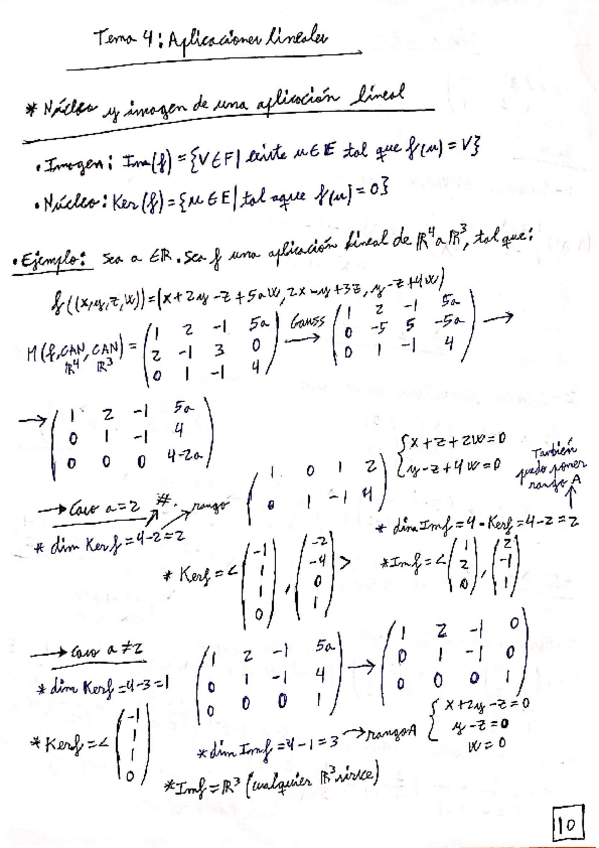 Tema 4: Aplicaciones lineales
* Núcleo y imagen de una aplicación lineal
• Imagen: Im(f) = {V∈F | existe u∈E tal que f(u) = V}
• Núcleo: Ker(f) = {u∈E | tal aque f(u) = 0}
• Ejemplo: Sea a ∈ ℝ. Sea f una aplicación lineal de ℝ⁴ a ℝ³, tal que:
f((x,y,z,w)) = (x+2y-z+5aw, 2x-y+3z, y-z+4w)
M(f, CAN ℝ⁴, CAN ℝ³) = ( 1 2 -1 5a ; 2 -1 3 0 ; 0 1 -1 4 ) Gauss → ( 1 2 -1 5a ; 0 -5 5 -5a ; 0 1 -1 4 ) →
→ ( 1 2 -1 5a ; 0 1 -1 4 ; 0 0 0 4-2a )
→ Caso a=2 #. rango ( 1 0 1 2 ; 0 1 -1 4 ) { x+z+2w=0 ; y-z+4w=0
También puedo poner rango A
* dim Kerf = 4-2 = 2
* dim Imf = 4 - Kerf = 4-2 = 2
* Kerf = < ( -1 1 1 0 ) , ( -2 -4 0 1 ) >
* Imf = < ( 1 2 0 ) , ( 2 -1 1 )
→ Caso a ≠ 2 ( 1 2 -1 5a ; 0 1 -1 4 ; 0 0 0 1 ) → ( 1 2 -1 0 ; 0 1 -1 0 ; 0 0 0 1 )
* dim Kerf = 4-3 = 1
{ x+2y-z=0 ; y-z=0 ; w=0
* Kerf = < ( -1 1 1 0 )
* dim Imf = 4-1 = 3 → rango A
* Imf = ℝ³ (cualquier ℝ³ sirve)
10